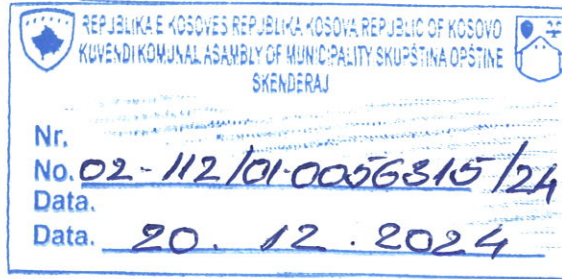 REPUBLIKA E KOSOVËS REPUBLIKA KOSOVA REPUBLIC OF KOSOVO
KUVENDI KOMUNAL ASAMBLY OF MUNICIPALITY SKUPŠTINA OPŠTINE
SKENDERAJ
Nr.
No. 02-112/01-0056315/24
Data.
Data. 20.12.2024